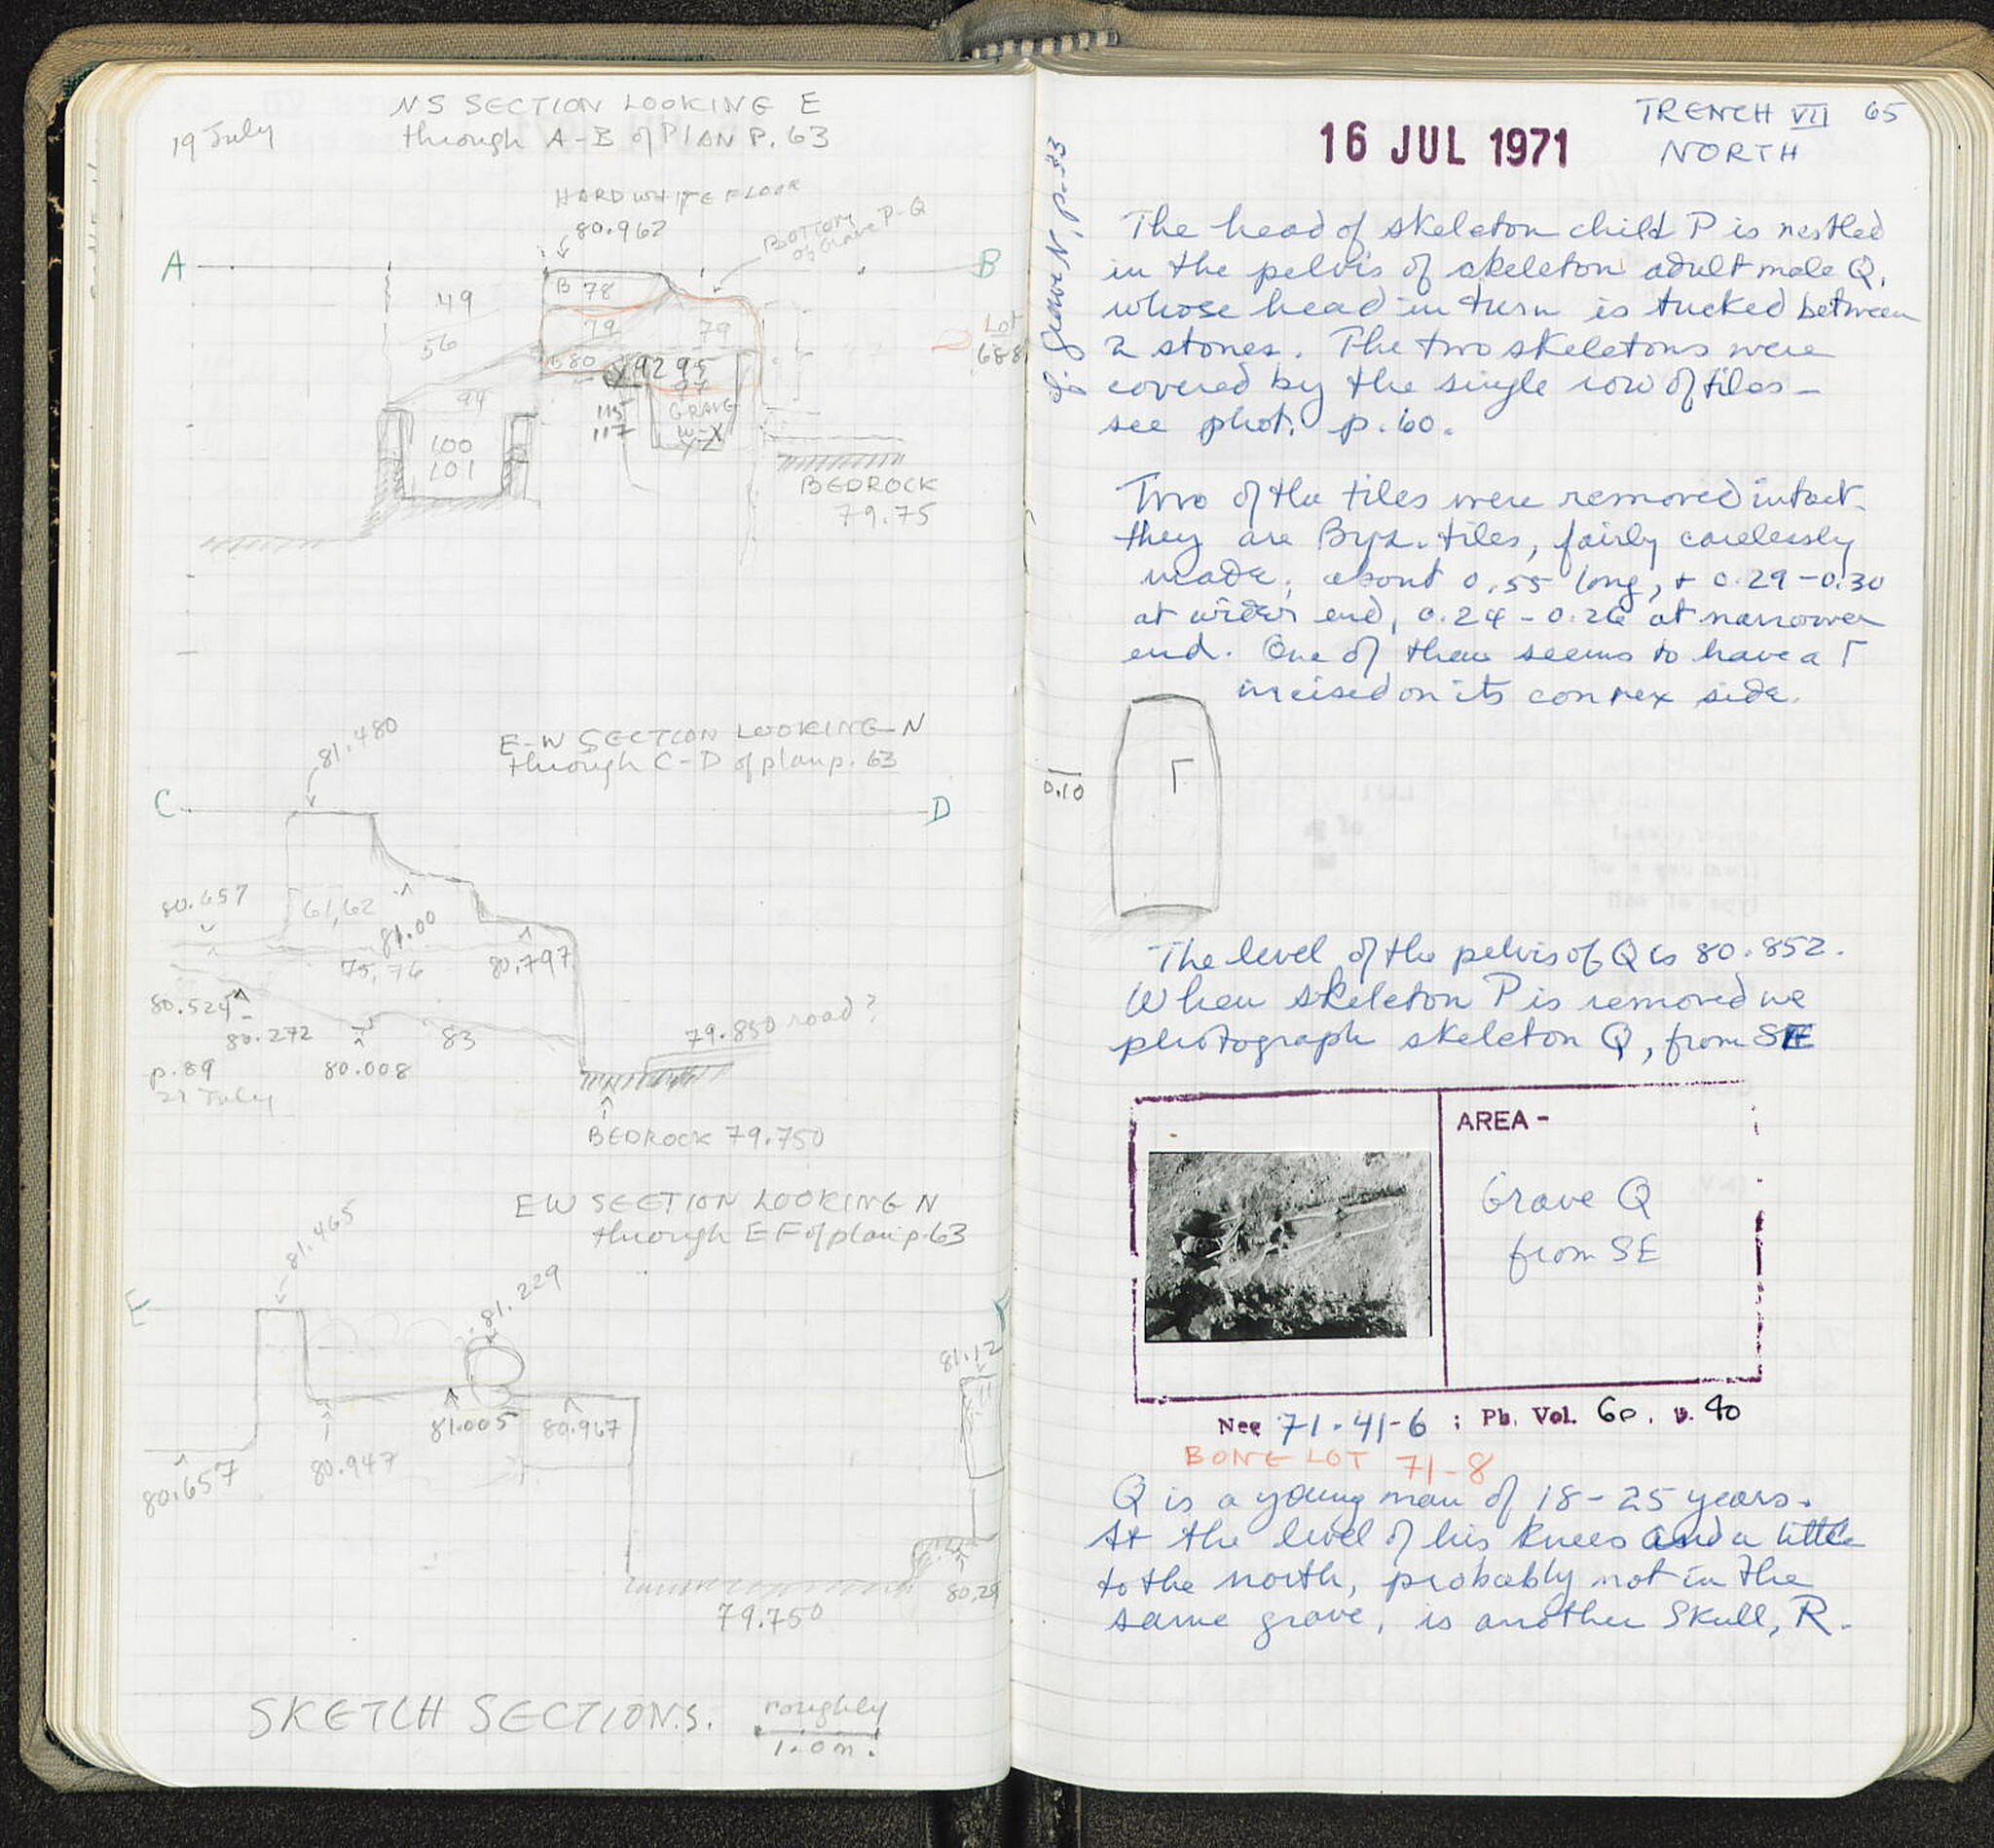 19 July
NS SECTION LOOKING E
through A-B of PLAN P. 63
HARD WHITE FLOOR
80.962
BOTTOM
of Grave P-Q
A
B
B 78
49
79
79
56
Lot
688
80
92 95
94
115
117
GRAVE
W-X
YZ
100
101
BEDROCK
79.75
81.480
E-W SECTION LOOKING N
through C-D of plan p. 63
C
D
80.657
61,62
81.00
75,76
80.797
80.524
80.272
80.008
83
79.850 road?
p.89
BEDROCK 79.750
EW SECTION LOOKING N
through EF of plan p. 63
81.465
81.229
E
F
81.12
81.005
80.967
80.947
80.657
79.750
SKETCH SECTIONS.
roughly
1.0m.
TRENCH VII 65
NORTH
16 JUL 1971
cf. Grave N, p. 33
The head of skeleton child P is nestled
in the pelvis of skeleton adult male Q,
whose head in turn is tucked between
2 stones. The two skeletons were
covered by the single row of tiles -
see phot. p. 60.
Two of the tiles were removed intact.
they are Byz. tiles, fairly carelessly
made, about 0.55 long, + 0.29-0.30
at wider end, 0.24-0.26 at narrower
end. One of them seems to have a Γ
incised on its convex side.
0.10
Γ
The level of the pelvis of Q is 80.852.
When skeleton P is removed we
photograph skeleton Q, from SE
AREA -
Grave Q
from SE
Neg 71-41-6 ; Ph. Vol. 60, p. 40
BONE LOT 71-8
Q is a young man of 18-25 years.
At the level of his knees and a little
to the north, probably not in the
same grave, is another skull, R.